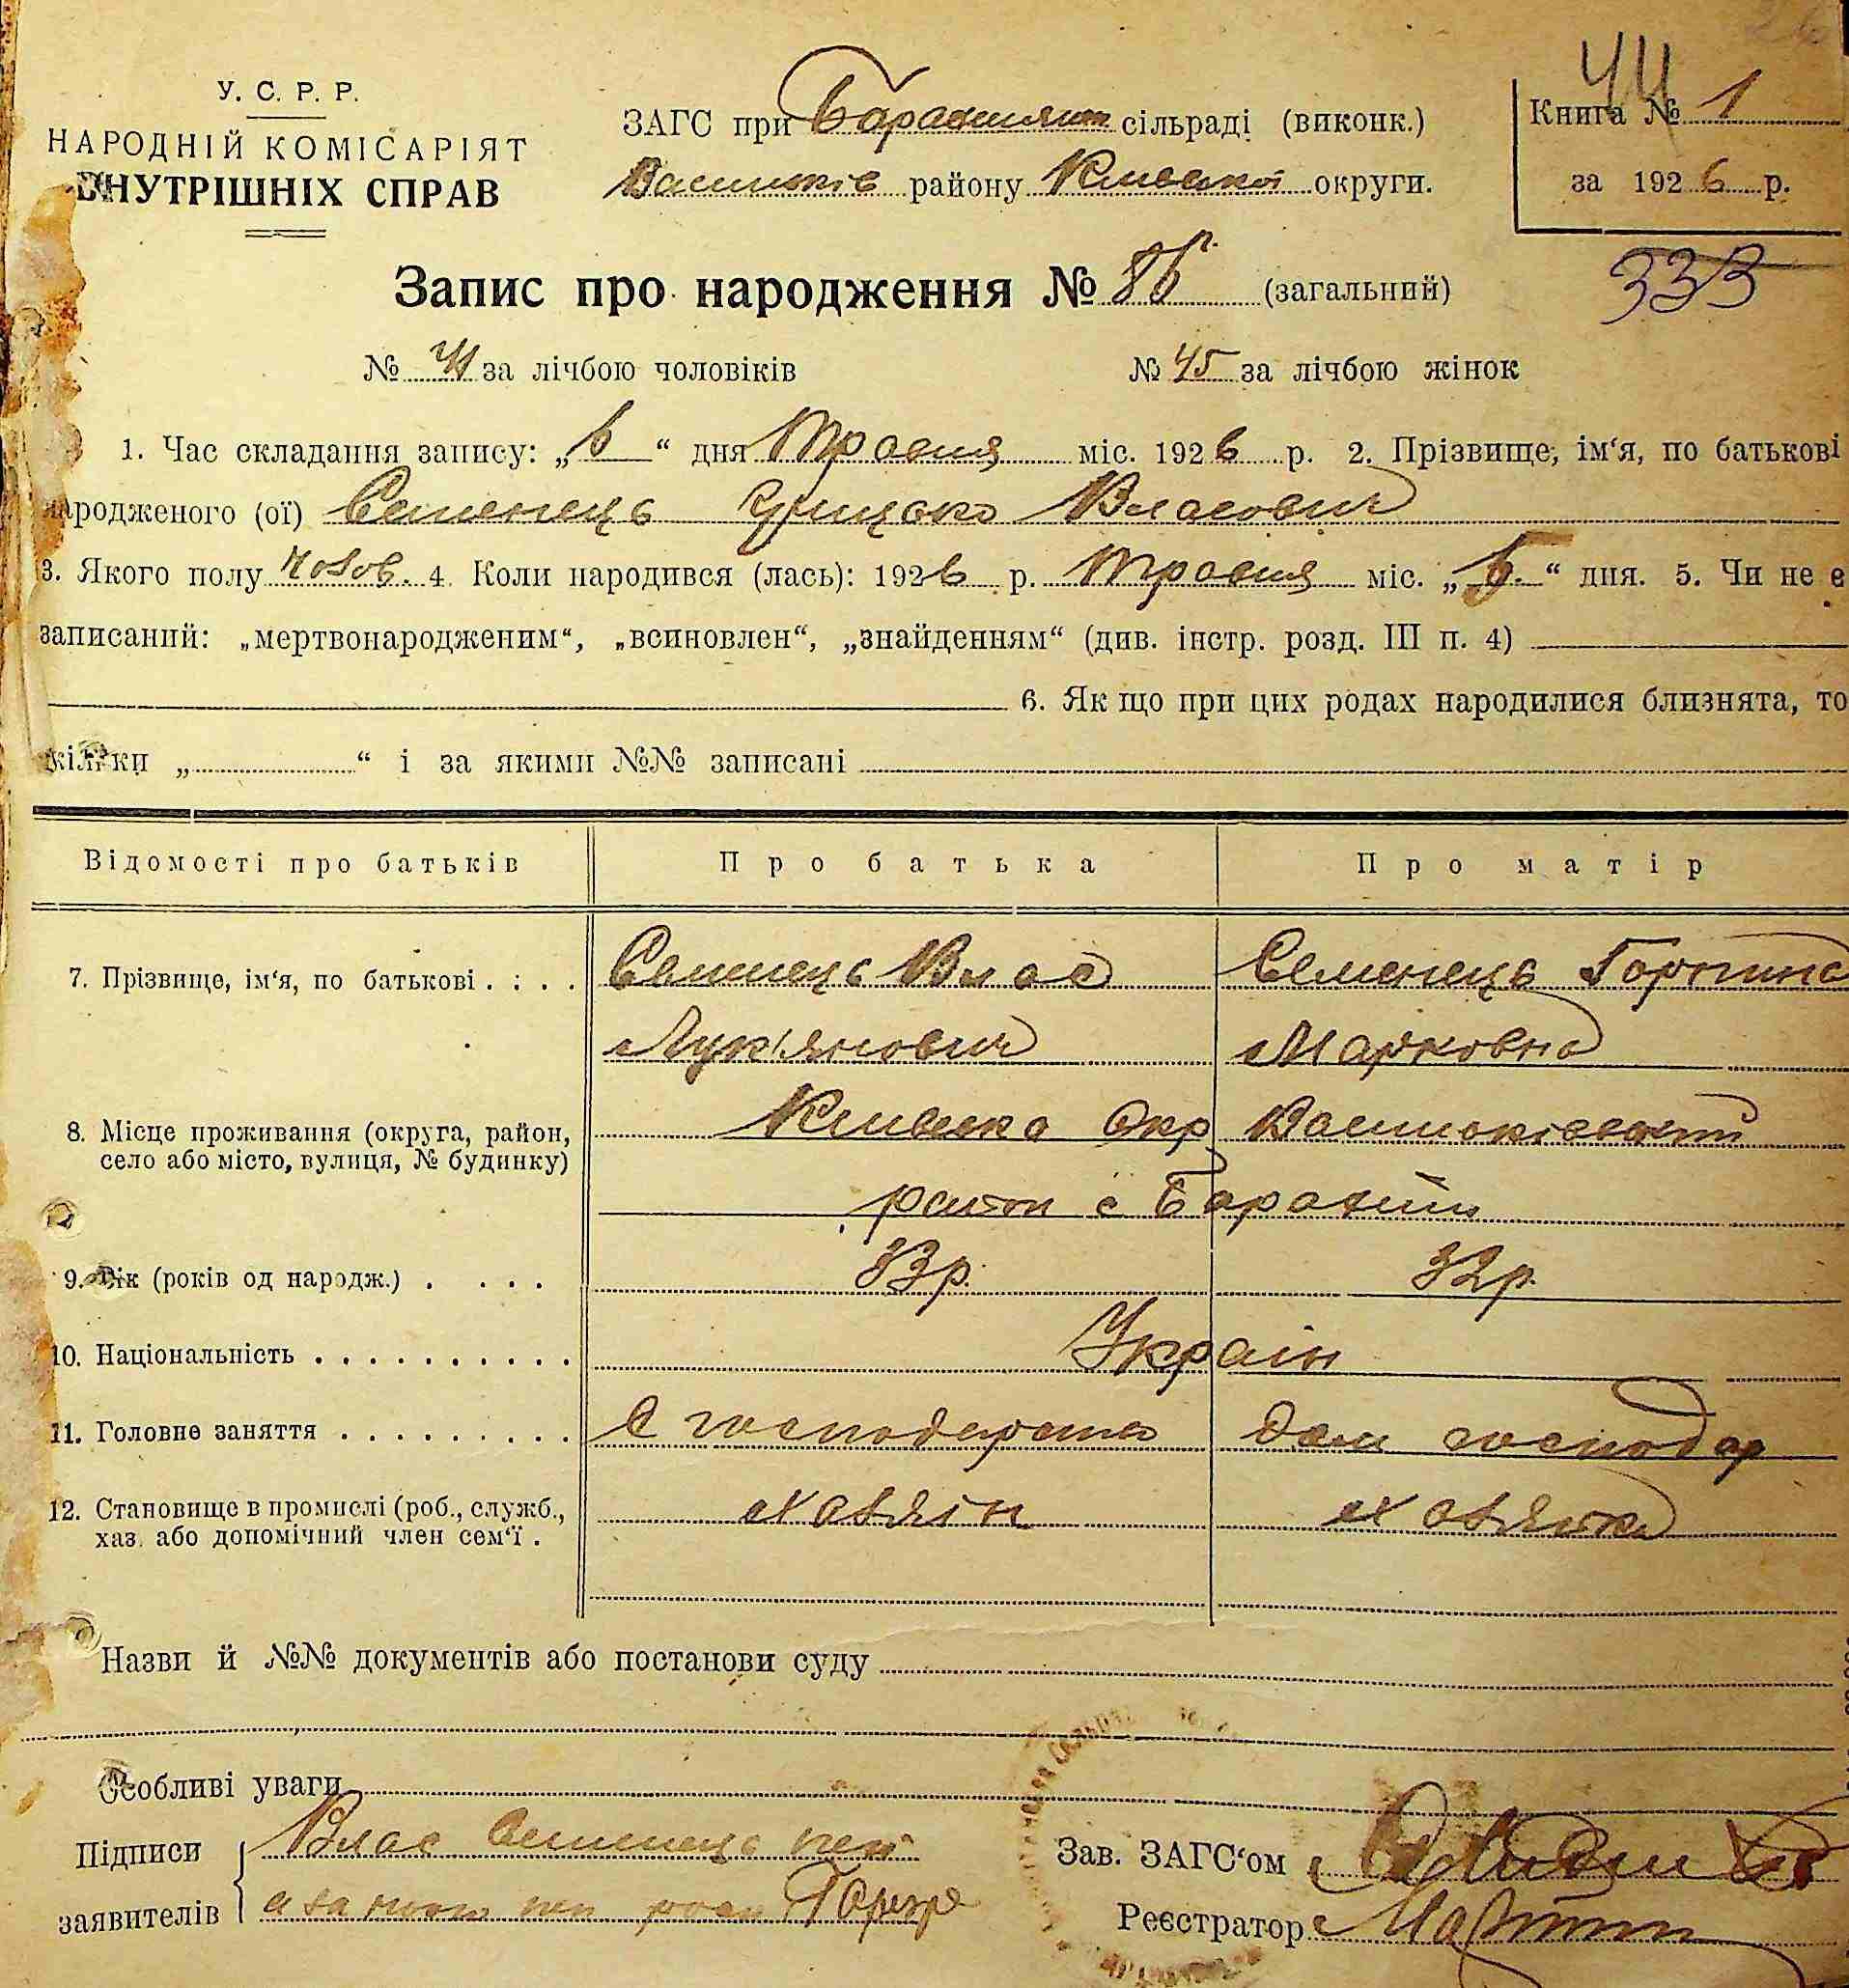 У. С. Р. Р.
НАРОДНІЙ КОМІСАРІЯТ
ВНУТРІШНІХ СПРАВ
ЗАГС при сільраді (виконк.)
Васильків району Київської округи.
44
Книга № 1
за 1926 р.
333
Запис про народження № 86 (загальний)
№ 41 за лічбою чоловіків № 45 за лічбою жінок
1. Час складання запису: „6“ дня Травня міс. 1926 р. 2. Прізвище, ім‘я, по батькові
народженого (ої) Семенець Грицько Власович
3. Якого полу чолов. 4. Коли народився (лась): 1926 р. Травня міс. „ “ дня. 5. Чи не є
записаний: „мертвонародженим“, „всиновлен“, „знайденням“ (див. інстр. розд. III п. 4)
6. Як що при цих родах народилися близнята, то
скільки „ “ і за якими №№ записані
Відомості про батьків Про батька Про матір
7. Прізвище, ім‘я, по батькові . : . . Семенець Влас Семенець Горпина
Лук'янович Марковна
8. Місце проживання (округа, район, Київська Окр Васильківський
село або місто, вулиця, № будинку)
район с
9. Вік (років од народж.) . . . . 33р. 32р.
10. Національність . . . . . . . . . . Україн
11. Головне заняття . . . . . . . . . С господарство Дом господар
12. Становище в промислі (роб., служб., Хазяін Хазяйка
хаз. або допомічний член сем‘ї .
Назви й №№ документів або постанови суду
Особливі уваги
Підписи Влас Семенець неп
заявителів а за його неп
Зав. ЗАГС‘ом
Реєстратор